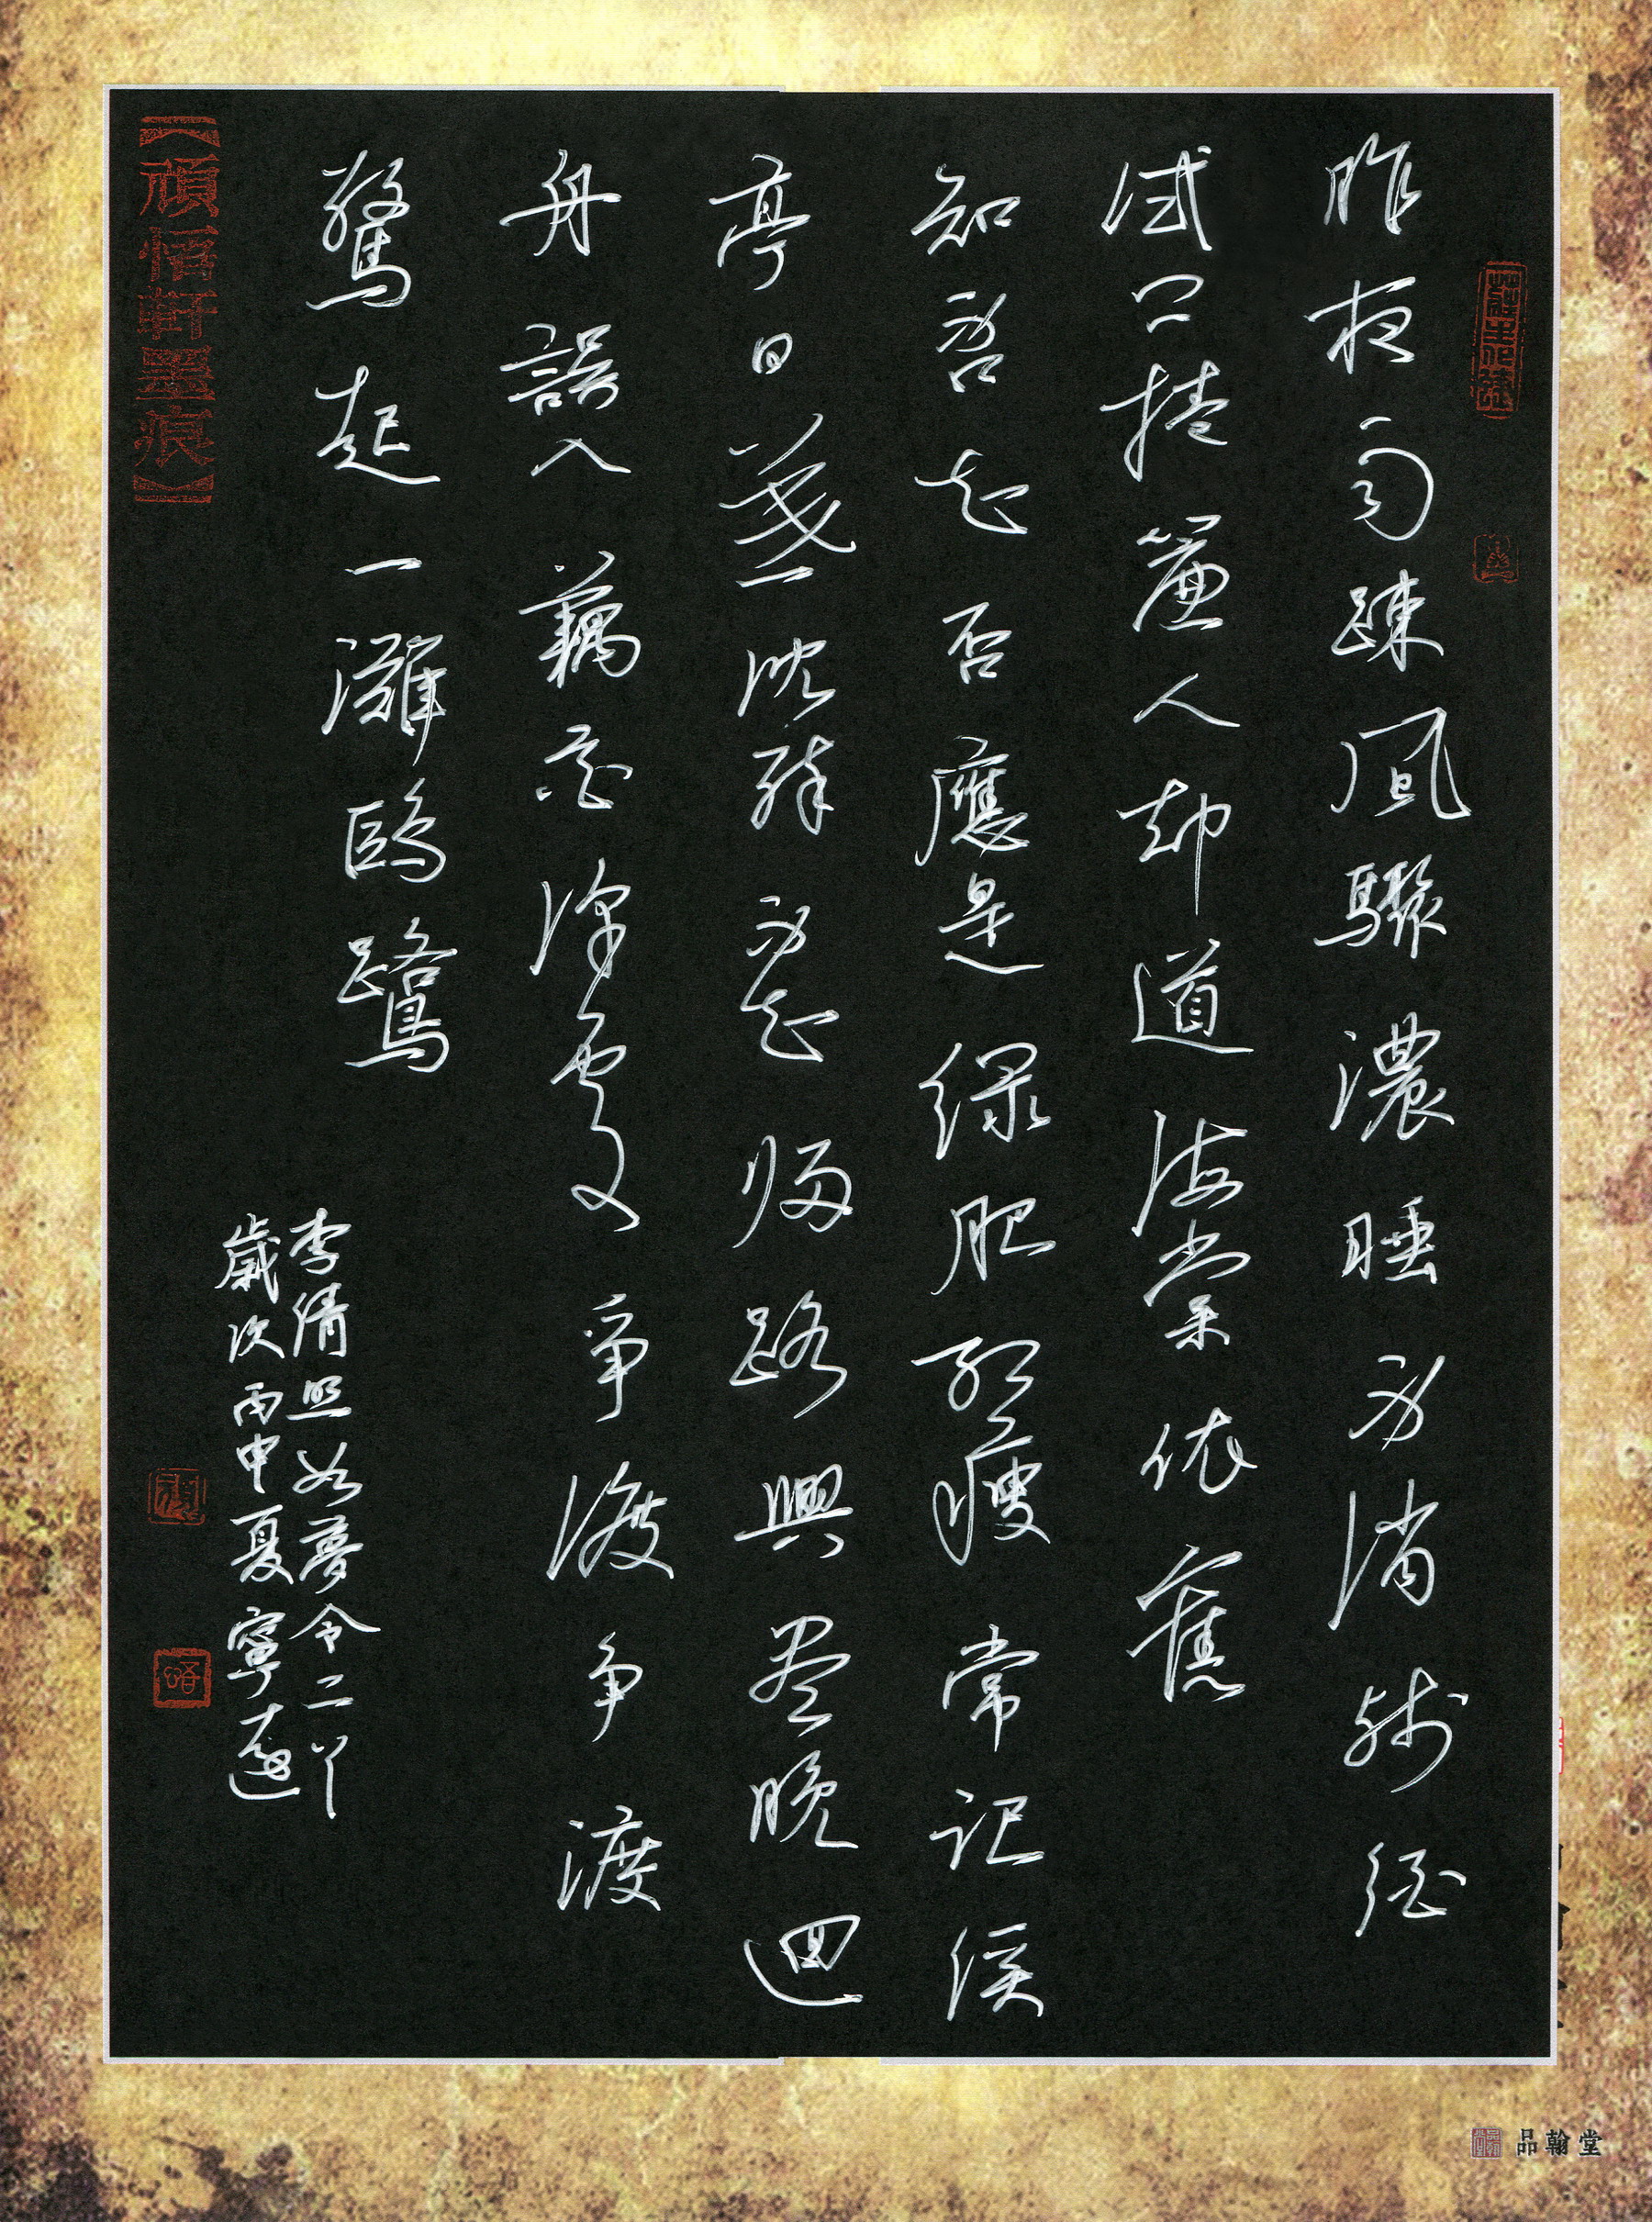 昨夜雨踈風驟濃睡不消殘酒
試問捲簾人却道海棠依舊
知否知否應是綠肥紅瘦常記溪
亭日暮沈醉不知歸路興盡晚迴
舟誤入藕花深處爭渡争渡
驚起一灘鷗鷺
李清照如夢令二首
歲次丙申夏寧遠
【頑悟軒墨痕】
頑
悟
品翰堂